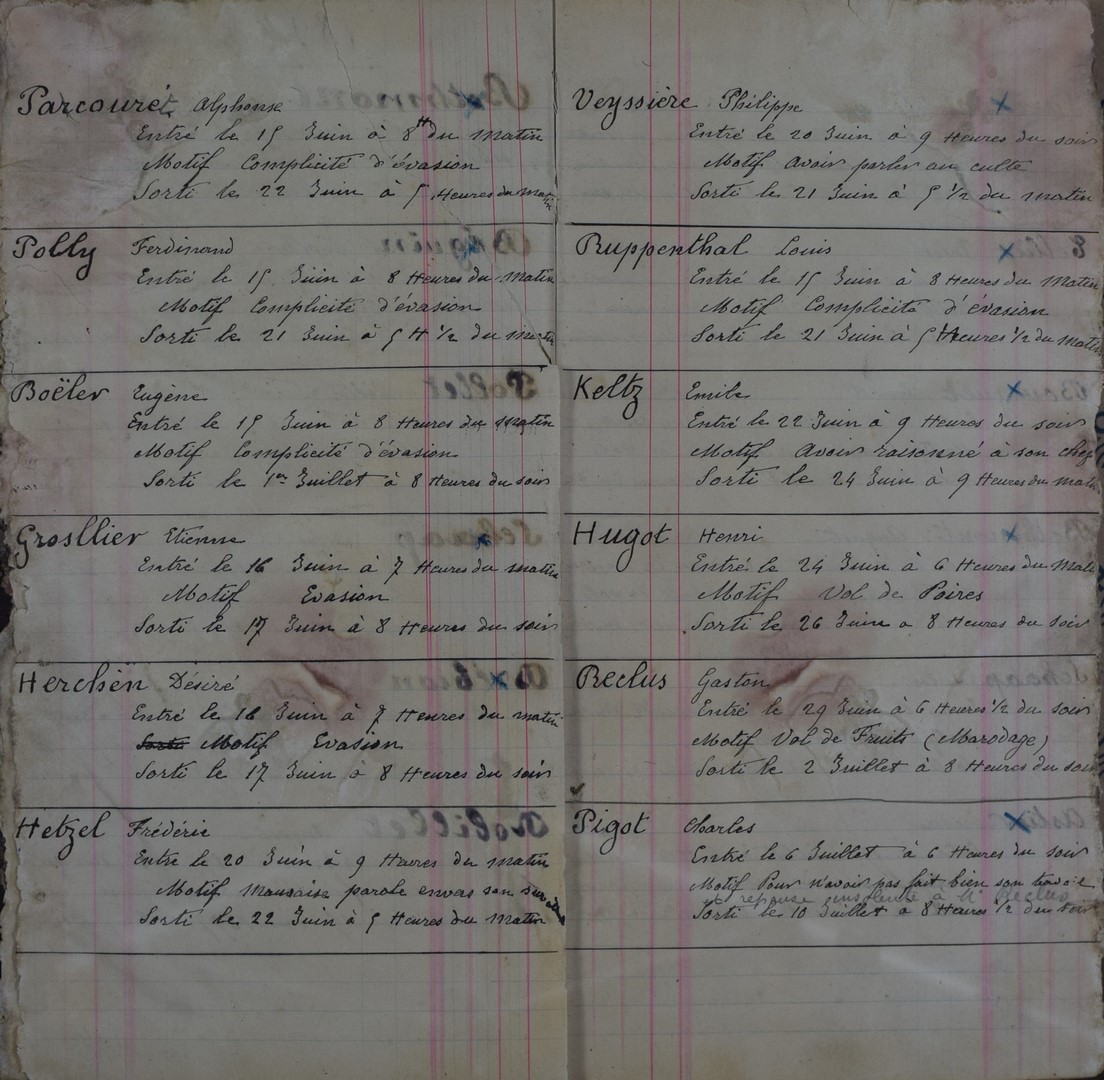 Parcouret Alphonse
Entré le 15 Juin à 8 H du matin
Motif Complicité d'évasion
Sorti le 22 Juin à 5 Heures du matin
Polly Ferdinand
Entré le 15 Juin à 8 Heures du matin
Motif Complicité d'évasion
Sorti le 21 Juin à 5 H 1/2 du matin
Boëler Eugène
Entré le 15 Juin à 8 Heures du matin
Motif Complicité d'évasion
Sorti le 1er Juillet à 8 Heures du soir
Grosllier Etienne
Entré le 16 Juin à 7 Heures du matin
Motif Evasion
Sorti le 17 Juin à 8 Heures du soir
Herchën Désiré
Entré le 16 Juin à 7 Heures du matin
Sorti Motif Evasion
Sorti le 17 Juin à 8 Heures du soir
Hetzel Frédéric
Entré le 20 Juin à 9 Heures du matin
Motif Mauvaise parole envers son
Sorti le 22 Juin à 5 Heures du Matin
Veyssière Philippe
Entré le 20 Juin à 9 Heures du soir
Motif Avoir parler au culte
Sorti le 21 Juin à 5 1/2 du matin
Ruppenthal Louis
Entré le 15 Juin à 8 Heures du Matin
Motif Complicité d'évasion
Sorti le 21 Juin à 5 Heures 1/2 du matin
Keltz Emile
Entré le 22 Juin à 9 Heures du soir
Motif Avoir raisonné à son chef
Sorti le 24 Juin à 9 Heures du matin
Hugot Henri
Entré le 24 Juin à 6 Heures du Matin
Motif Vol de Poires
Sorti le 26 Juin a 8 Heures du soir
Reclus Gaston
Entré le 29 Juin à 6 Heures 1/2 du soir
Motif Vol de Fruits (Marodage)
Sorti le 2 Juillet à 8 Heures du soir
Pigot Charles
Entré le 6 Juillet à 6 Heures du soir
Motif Pour n'avoir pas fait bien son travail
et reponse insolente à Mr Reclus
Sorti le 10 Juillet a 8 Heures 1/2 du soir